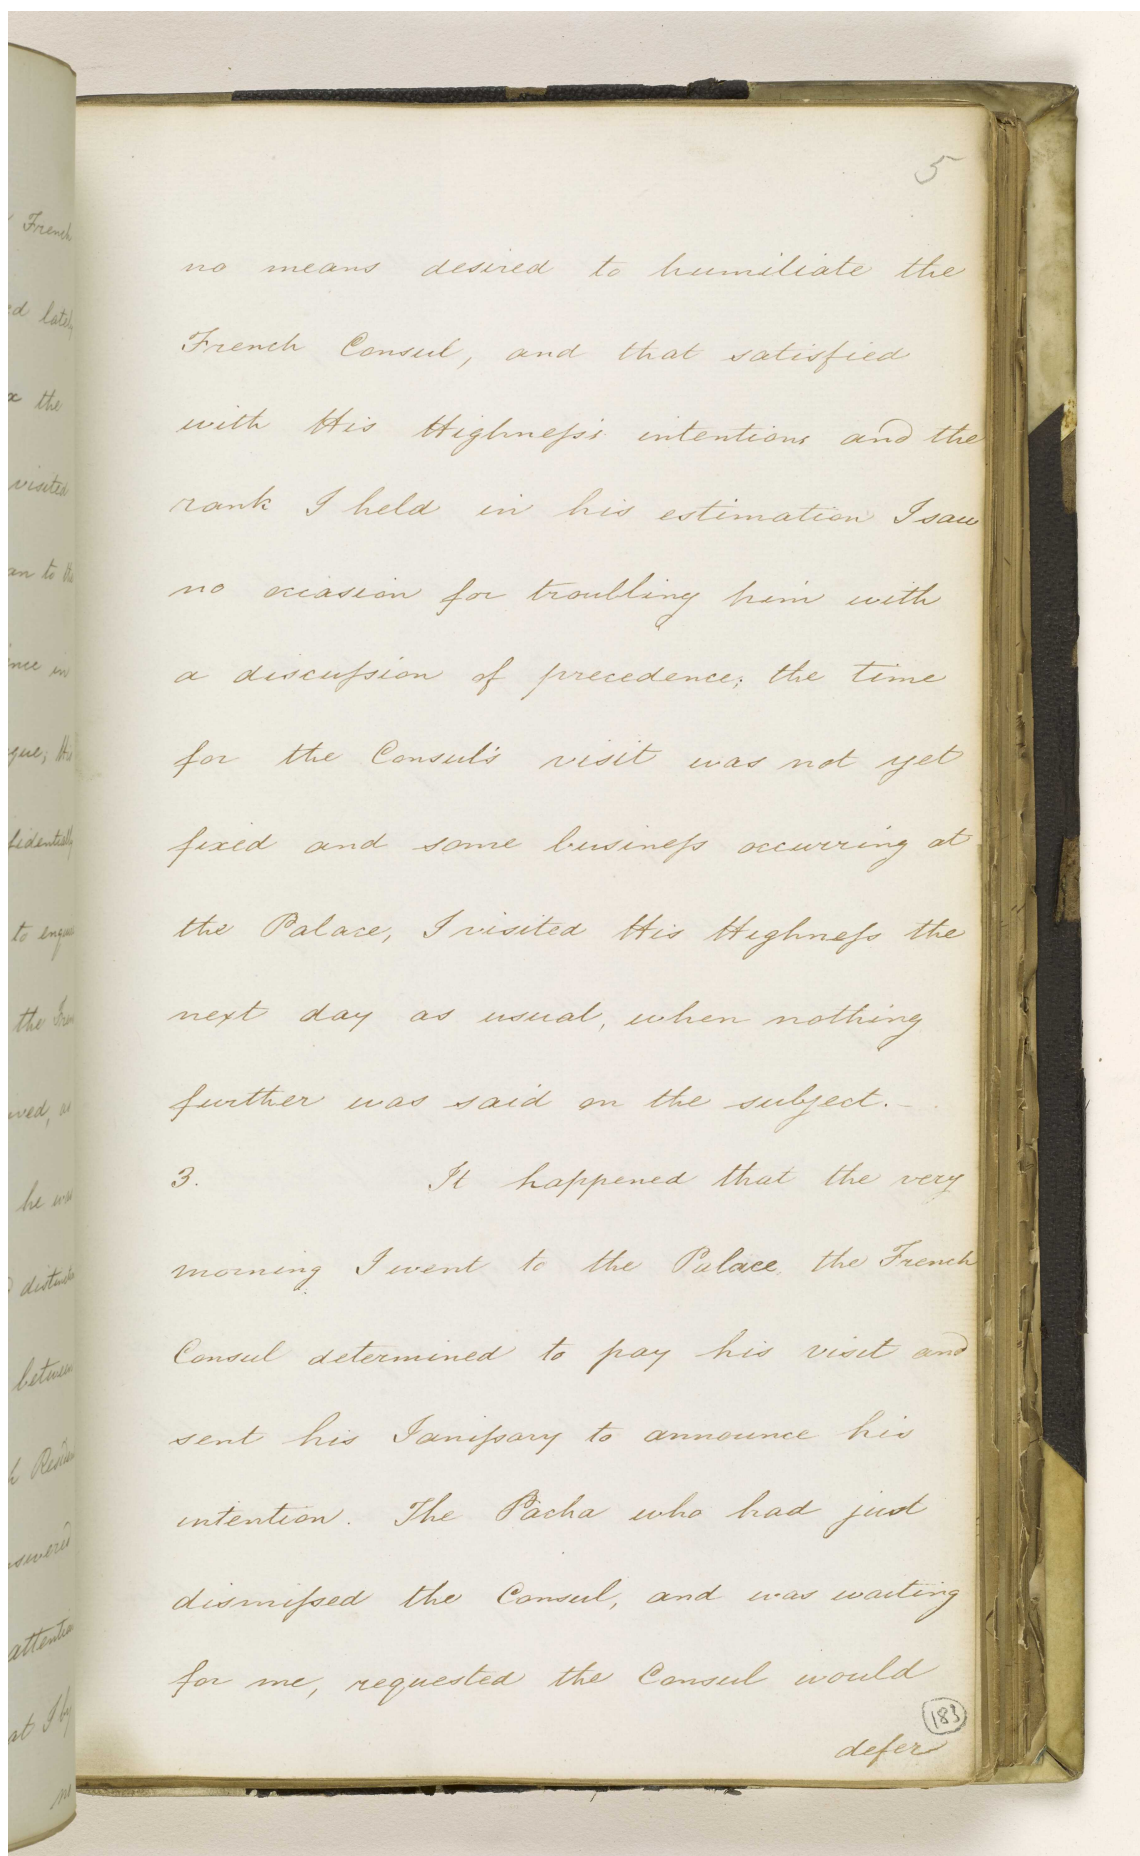 5
no means desired to humiliate the
French Consul, and that satisfied
with His Highneſs's intentions and the
rank I held in his estimation I saw
no occasion for troubling him with
a discuſsion of precedence; the time
for the Consul's visit was not yet
fixed and some busineſs occurring at
the Palace, I visited His Highneſs the
next day as usual, when nothing
further was said on the subject. _
3. It happened that the very
morning I went to the Palace the French
Consul determined to pay his visit and
sent his Janiſsary to announce his
intention. The Pacha who had just
dismiſsed the Consul, and was waiting
for me, requested the Consul would
183
defer
French
lately
the
visited
to the
in
to
the
he was
between